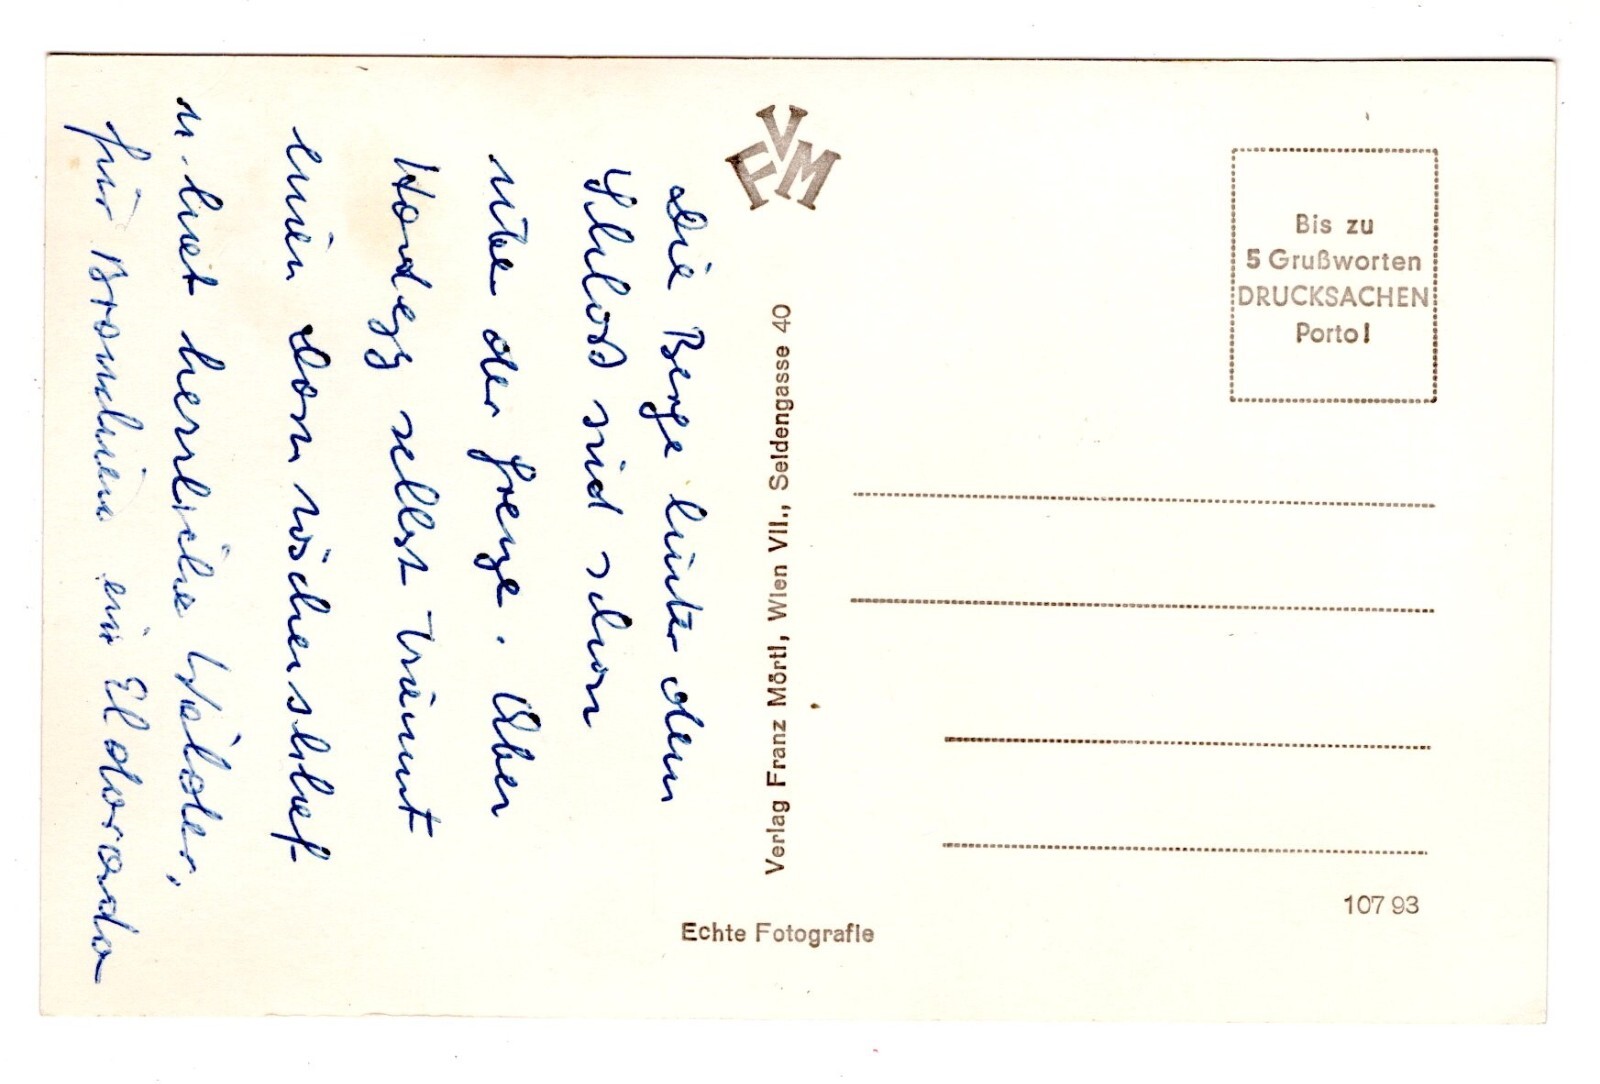 Die Berge hinter dem
Schloss sind schon
über der Grenze. Aber
Hardegg selbst träumt
einen Dornröschenschlaf
u. hat herrliche Wälder,
für Bronchien ein Eldorado
FVM
Verlag Franz Mörtl, Wien VII., Seidengasse 40
Echte Fotografie
Bis zu
5 Grußworten
DRUCKSACHEN
Porto!
107 93